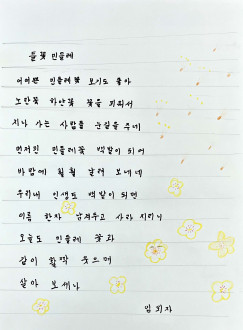 들꽃 민들레
어여쁜 민들레꽃 보기도 좋아
노란꽃 하얀꽃 꽃을 피워서
지나 가는 사람들 눈길을 주네
먼저진 민들레꽃 백발이 되어
바람에 훨훨 날려 보내네
우리네 인생도 백발이 되면
이름 한자 남겨두고 사라 지리니
오늘도 민들레 꽃과
같이 활짝 웃으며
살아 보세나
임희자